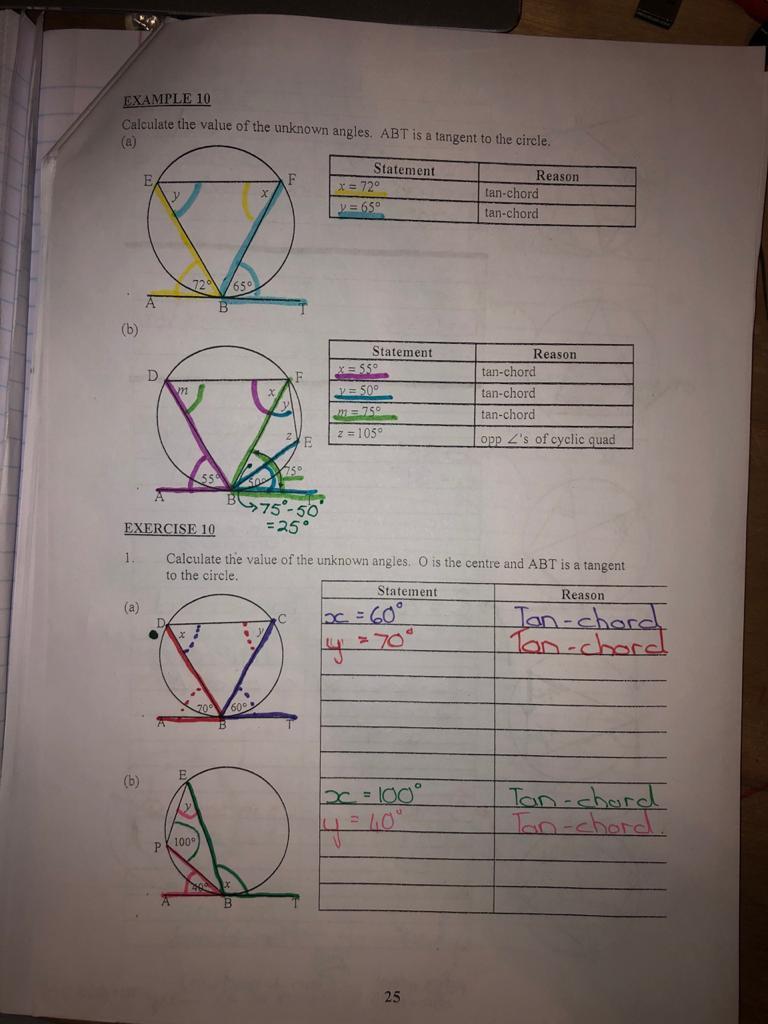 EXAMPLE 10
Calculate the value of the unknown angles. ABT is a tangent to the circle.
(a)
E y x F
72° 65°
A B T
Statement Reason
x = 72° tan-chord
y = 65° tan-chord
(b)
D m x F
y
z E
55° 50° 75°
A B T
75° - 50°
= 25°
Statement Reason
x = 55° tan-chord
y = 50° tan-chord
m = 75° tan-chord
z = 105° opp ∠'s of cyclic quad
EXERCISE 10
1. Calculate the value of the unknown angles. O is the centre and ABT is a tangent
to the circle.
(a)
D x y C
70° 60°
A B T
Statement Reason
x = 60° Tan-chord
y = 70° Tan-chord
(b)
E
y
P 100°
40° x
A B T
x = 100° Tan-chord
y = 40° Tan-chord.
25